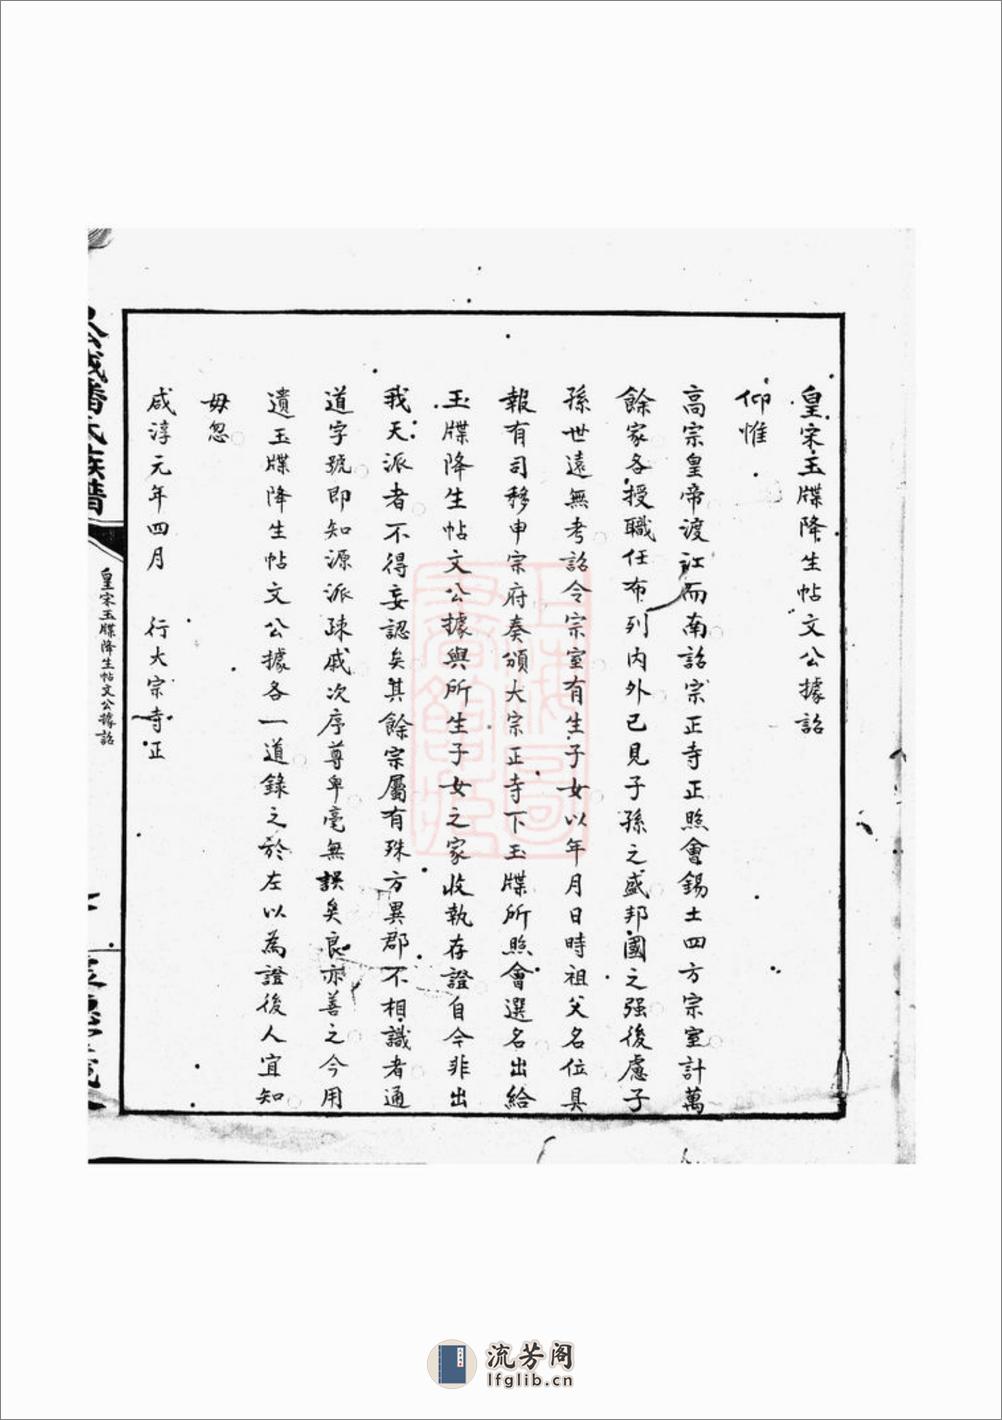 皇宋玉牒降生帖文公據詔
仰惟
高宗皇帝渡江而南詔宗正寺正照會錫土四方宗室計萬
餘家各授職任布列內外已見子孫之盛邦國之强後慮子
孫世遠無考詔令宗室有生子女以年月日時祖父名位具
報有司移申宗府奏頒大宗正寺下玉牒所照會選名出給
玉牒降生帖文公據與所生子女之家收執存證自今非出
我天派者不得妄認矣其餘宗屬有殊方異郡不相識者通
道字號即知源派疎戚次序尊卑毫無誤矣良亦善之今用
遺玉牒降生帖文公據各一道錄之於左以為證後人宜知
毋忽
咸淳元年四月 行大宗寺正
潘氏族譜
皇宋玉牒降生帖文公據詔
流芳阁
lfglib.cn